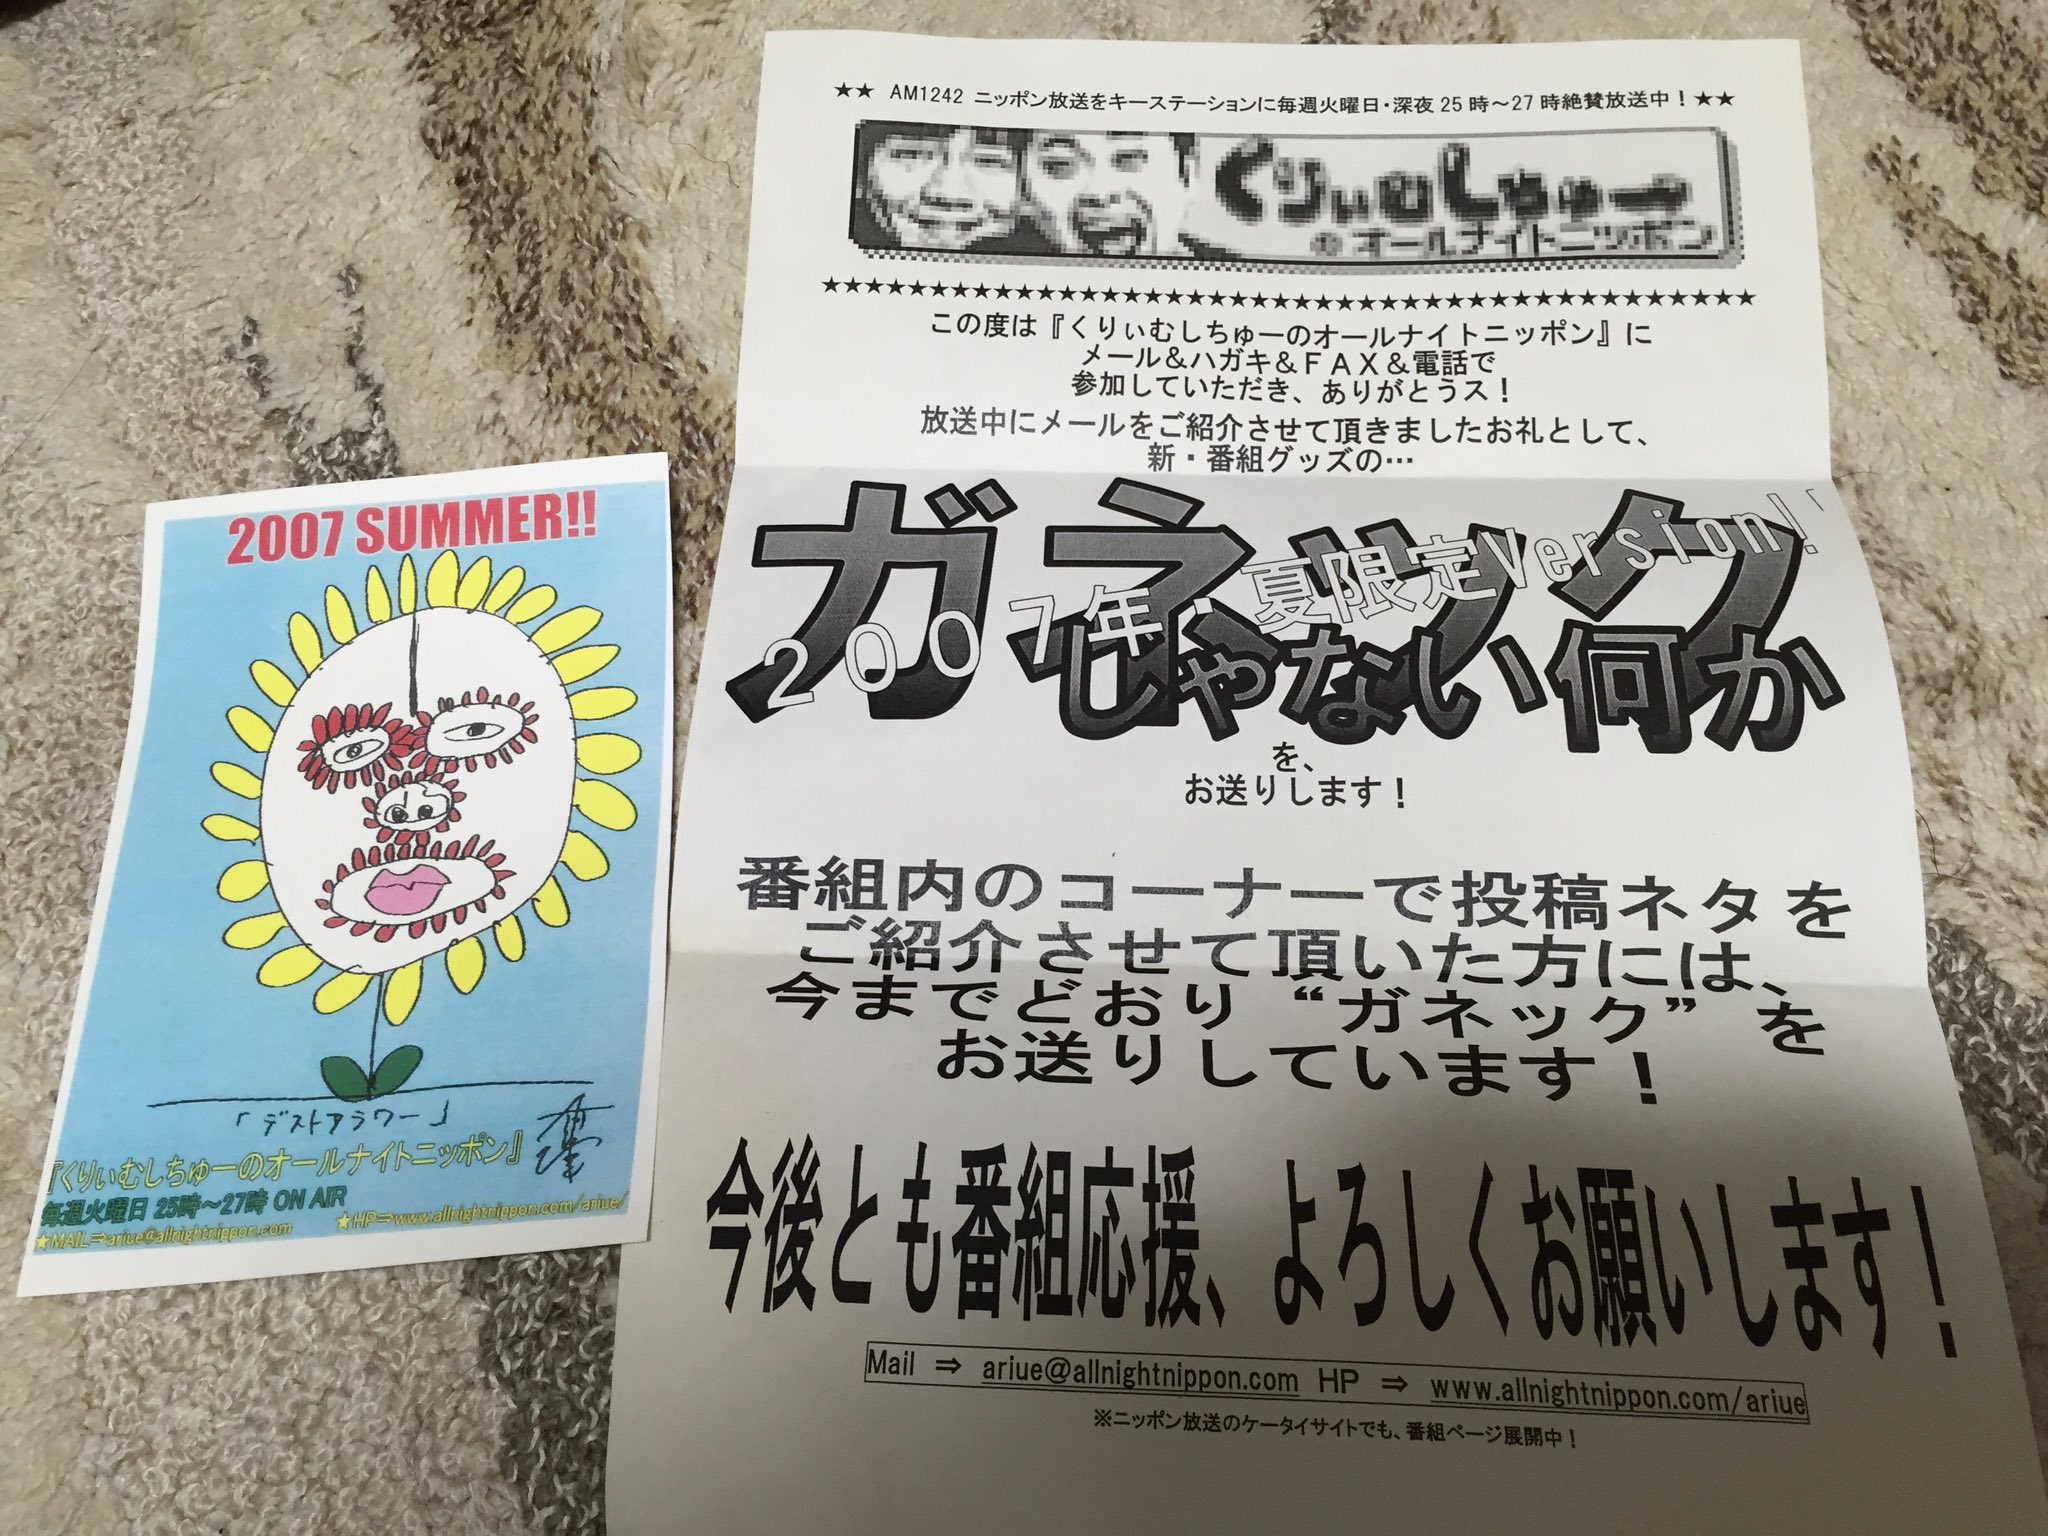 2007 SUMMER!!
「デストアラワー」
『くりぃむしちゅーのオールナイトニッポン』
毎週火曜日 25時～27時 ON AIR
★MAIL⇒ariue@allnightnippon.com
★HP⇒www.allnightnippon.com/ariue/
★★ AM1242 ニッポン放送をキーステーションに毎週火曜日・深夜25時～27時絶賛放送中！★★
くりぃむしちゅー
のオールナイトニッポン
★★★★★★★★★★★★★★★★★★★★★★★★★★★★★★★★★★★★★★★★★★★★★★★★★★★★
この度は『くりぃむしちゅーのオールナイトニッポン』に
メール＆ハガキ＆ＦＡＸ＆電話で
参加していただき、ありがとうス！
放送中にメールをご紹介させて頂きましたお礼として、
新・番組グッズの…
ガネック
2007年・夏限定Version!!
じゃない何か
を、
お送りします！
番組内のコーナーで投稿ネタを
ご紹介させて頂いた方には、
今までどおり“ガネック”を
お送りしています！
今後とも番組応援、よろしくお願いします！
Mail ⇒ ariue@allnightnippon.com HP ⇒ www.allnightnippon.com/ariue
※ニッポン放送のケータイサイトでも、番組ページ展開中！